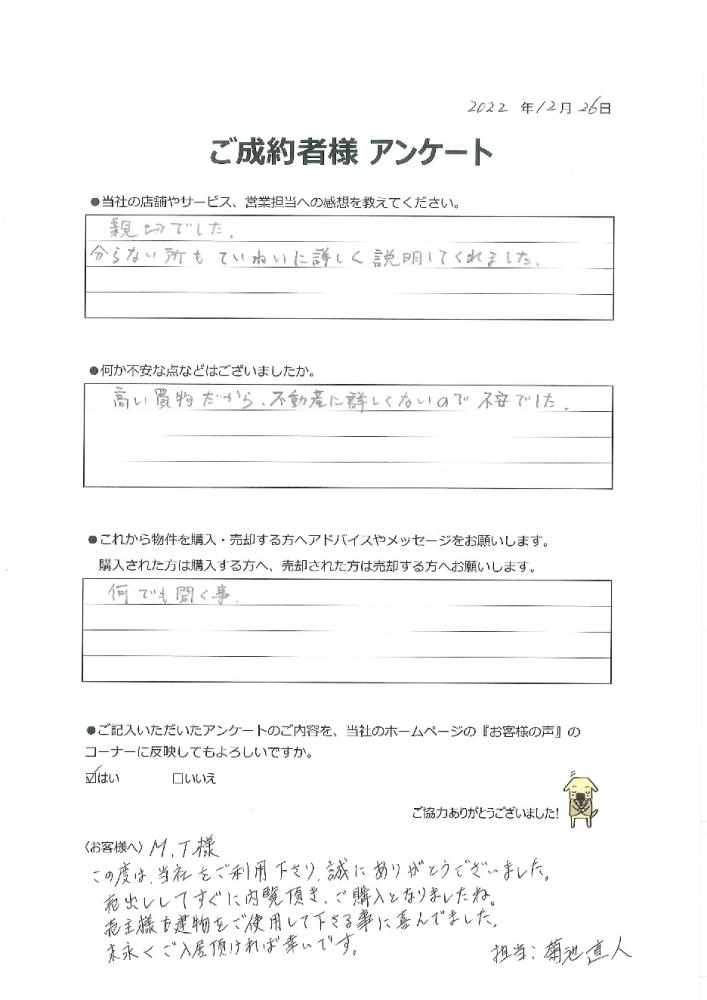 2022 年12月26日
ご成約者様 アンケート
●当社の店舗やサービス、営業担当への感想を教えてください。
親切でした.
分らない所も ていねいに詳しく説明してくれました.
●何か不安な点などはございましたか。
高い買物だから、不動産に詳しくないので 不安でした.
●これから物件を購入・売却する方へアドバイスやメッセージをお願いします。
購入された方は購入する方へ、売却された方は売却する方へお願いします。
何でも聞く事.
●ご記入いただいたアンケートのご内容を、当社のホームページの『お客様の声』の
コーナーに反映してもよろしいですか。
☑はい □いいえ
ご協力ありがとうございました!
〈お客様へ〉 M.T様
この度は、当社をご利用下さり、誠にありがとうございました。
売出ししてすぐに内覧頂き、ご購入となりましたね。
売主様も建物をご使用して下さる事に喜んでました。
末永くご入居頂ければ幸いです。
担当:菊池直人